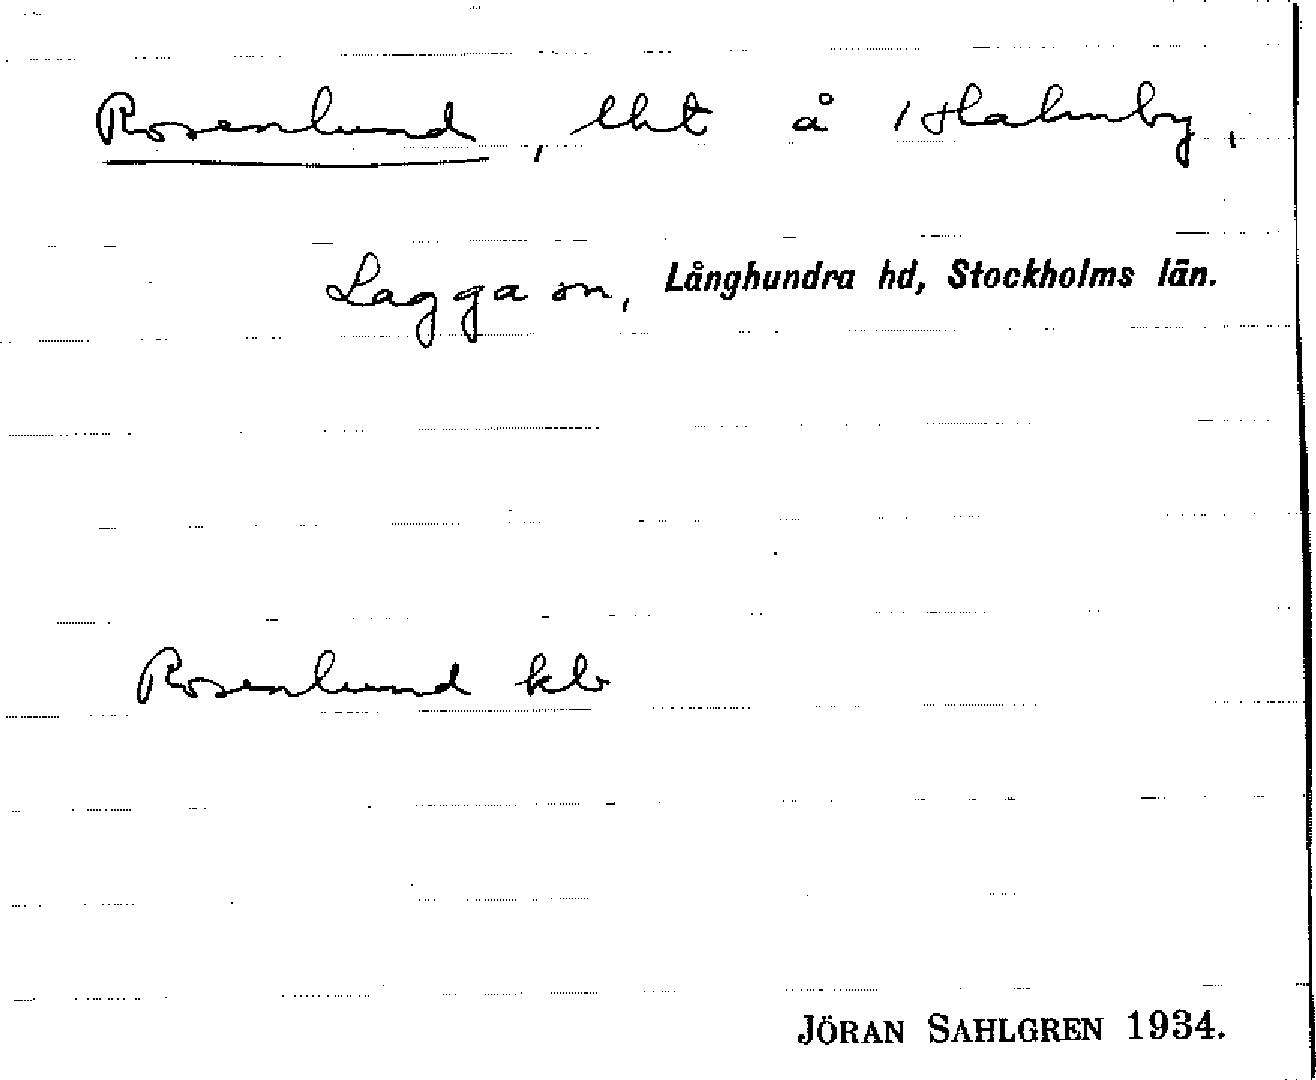 Rosenlund, lht å Halmby,
Lagga sn, Långhundra hd, Stockholms län.
Rosenlund klv
JÖRAN SAHLGREN 1934.